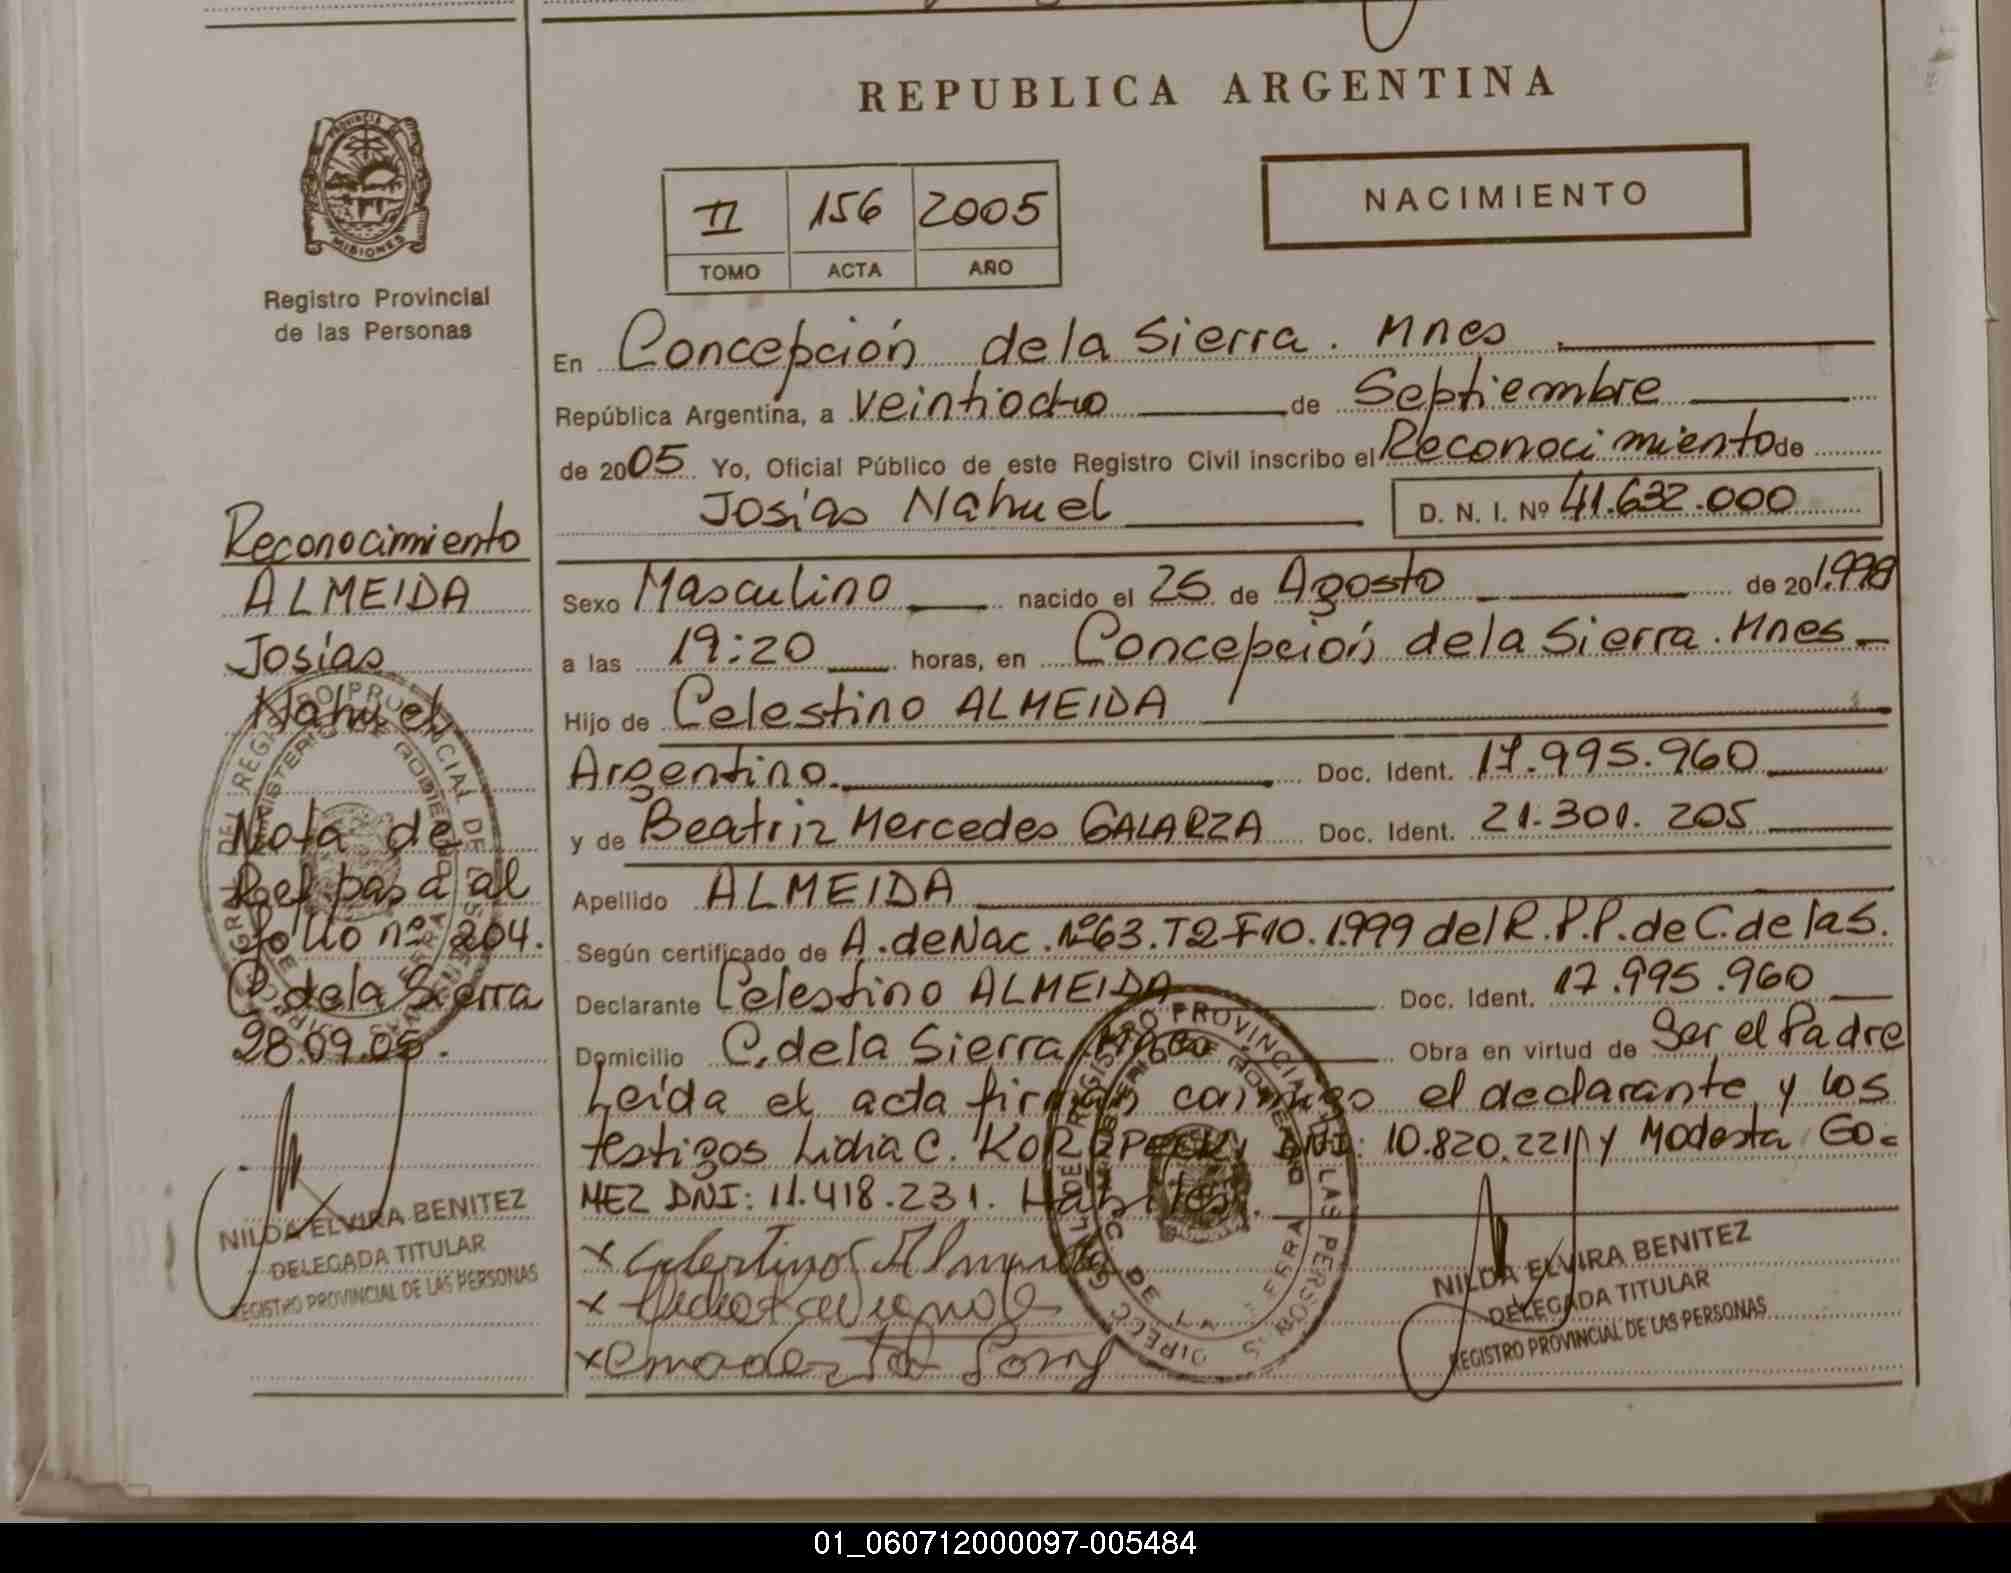 REPUBLICA ARGENTINA
PROVINCIA DE
MISIONES
Registro Provincial
de las Personas
NACIMIENTO
II 156 2005
TOMO ACTA AÑO
En Concepción de la Sierra. Mnes
República Argentina, a veintiocho de Septiembre
de 2005 Yo, Oficial Público de este Registro Civil inscribo el Reconocimiento de
Josías Nahuel D. N. I. Nº 41.632.000
Sexo Masculino nacido el 25 de Agosto de 20 1.998
a las 19:20 horas, en Concepción de la Sierra. Mnes
Hijo de Celestino ALMEIDA
Argentino. Doc. Ident. 17.995.960
y de Beatriz Mercedes GALARZA Doc. Ident. 21.301.205
Apellido ALMEIDA
Según certificado de A. de Nac. Nº63.T2F10.1.999 del R.P.P. de C. de la S.
Declarante Celestino ALMEIDA Doc. Ident. 17.995.960
Domicilio C. de la Sierra Obra en virtud de Ser el Padre
Leída el acta firman conmigo el declarante y los
testigos Lidia C. DNI: 10.820.221 y Modesta GO-
MEZ DNI: 11.418.231. Hábiles.
NILDA ELVIRA BENITEZ
DELEGADA TITULAR
REGISTRO PROVINCIAL DE LAS PERSONAS
Reconocimiento
ALMEIDA
Josías
Nahuel
Nota de
Ref pasa al
folio nº 204.
C. de la Sierra
28.09.05.
NILDA ELVIRA BENITEZ
DELEGADA TITULAR
REGISTRO PROVINCIAL DE LAS PERSONAS
01_060712000097-005484